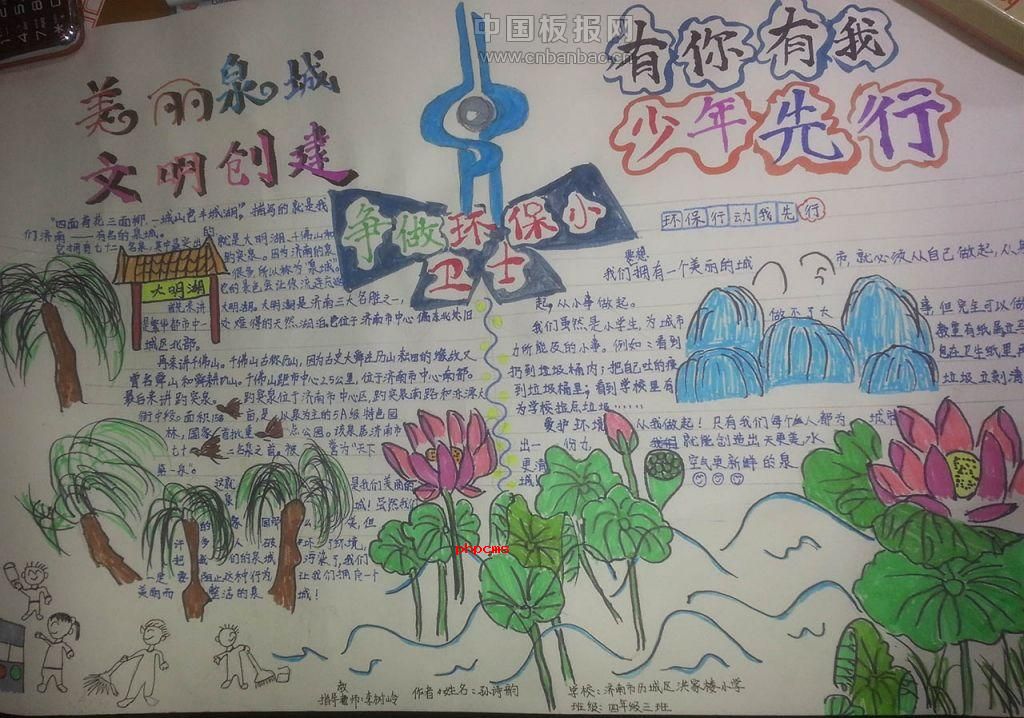 中国板报网
www.cnbanbao.cn
美丽泉城
文明创建
有你有我
少年先行
争做环保小
卫士
环保行动我先行
"四面荷花三面柳,一城山色半城湖",描写的就是我
们济南——有名的泉城。
就是大明湖、千佛山和
趵突泉。因为济南的泉
很多所以称为"泉城"。
大明湖
大明湖。大明湖是济南三大名胜之一,
是繁华都市中一处难得的天然湖泊,它位于济南市中心偏东北处、旧
城区北部。
再来讲千佛山。千佛山古称历山,因为古史大舜在历山耕田的缘故又
曾名舜山和舜耕山。千佛山距市中心2.5公里,位于济南市中心南部。
最后来讲趵突泉。趵突泉位于济南市中心区,趵突泉南路和
街中段。面积158亩,是以泉为主的5A级特色园
林,国家首批重点公园。该泉居济南市
七十二名泉之首。被誉为"天下
第一泉"。
这就是我们美丽的
泉城!虽然我们
环境,
们的泉城污染了,我们
一定要阻止这种行为让我们拥有一个
美丽而整洁的泉城!
我们拥有一个美丽的城市,就必须从自己做起,从
起,从小事做起。
做不了大事,但完全可以做
我们虽然是小学生,为城市
力所能及的小事。例如:看到教室有纸屑
扔到垃圾桶内;把自己吐的痰包在卫生纸里
到垃圾桶里;看到学校里有垃圾立刻清
为学校捡点垃圾……
爱护环境从我做起!只有我们每个人都为城市
出一份力,就能创造出天更蓝,水
更清,空气更新鲜的泉
城!
phpcms
指导教师:李树岭
作者姓名:孙诗韵
学校:济南市历城区洪家楼小学
班级:四年级三班